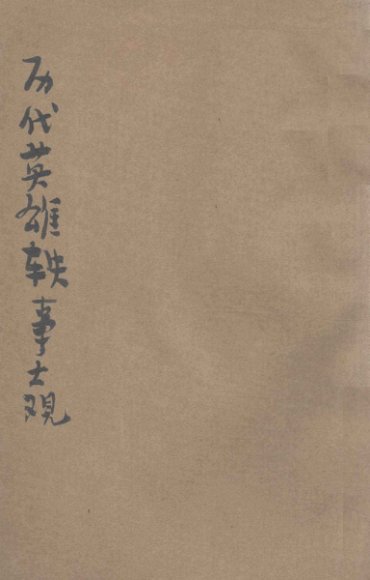 历代英雄轶事大观